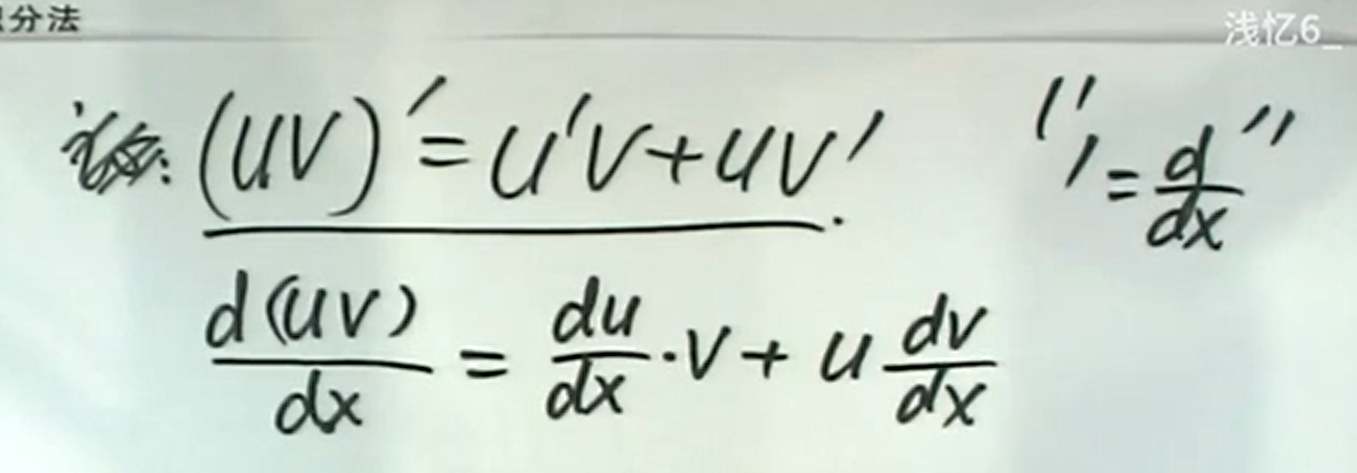 分法
浅忆6_
(uv)' = u'v + uv'. "' = d/dx"
d(uv)/dx = du/dx · v + u dv/dx